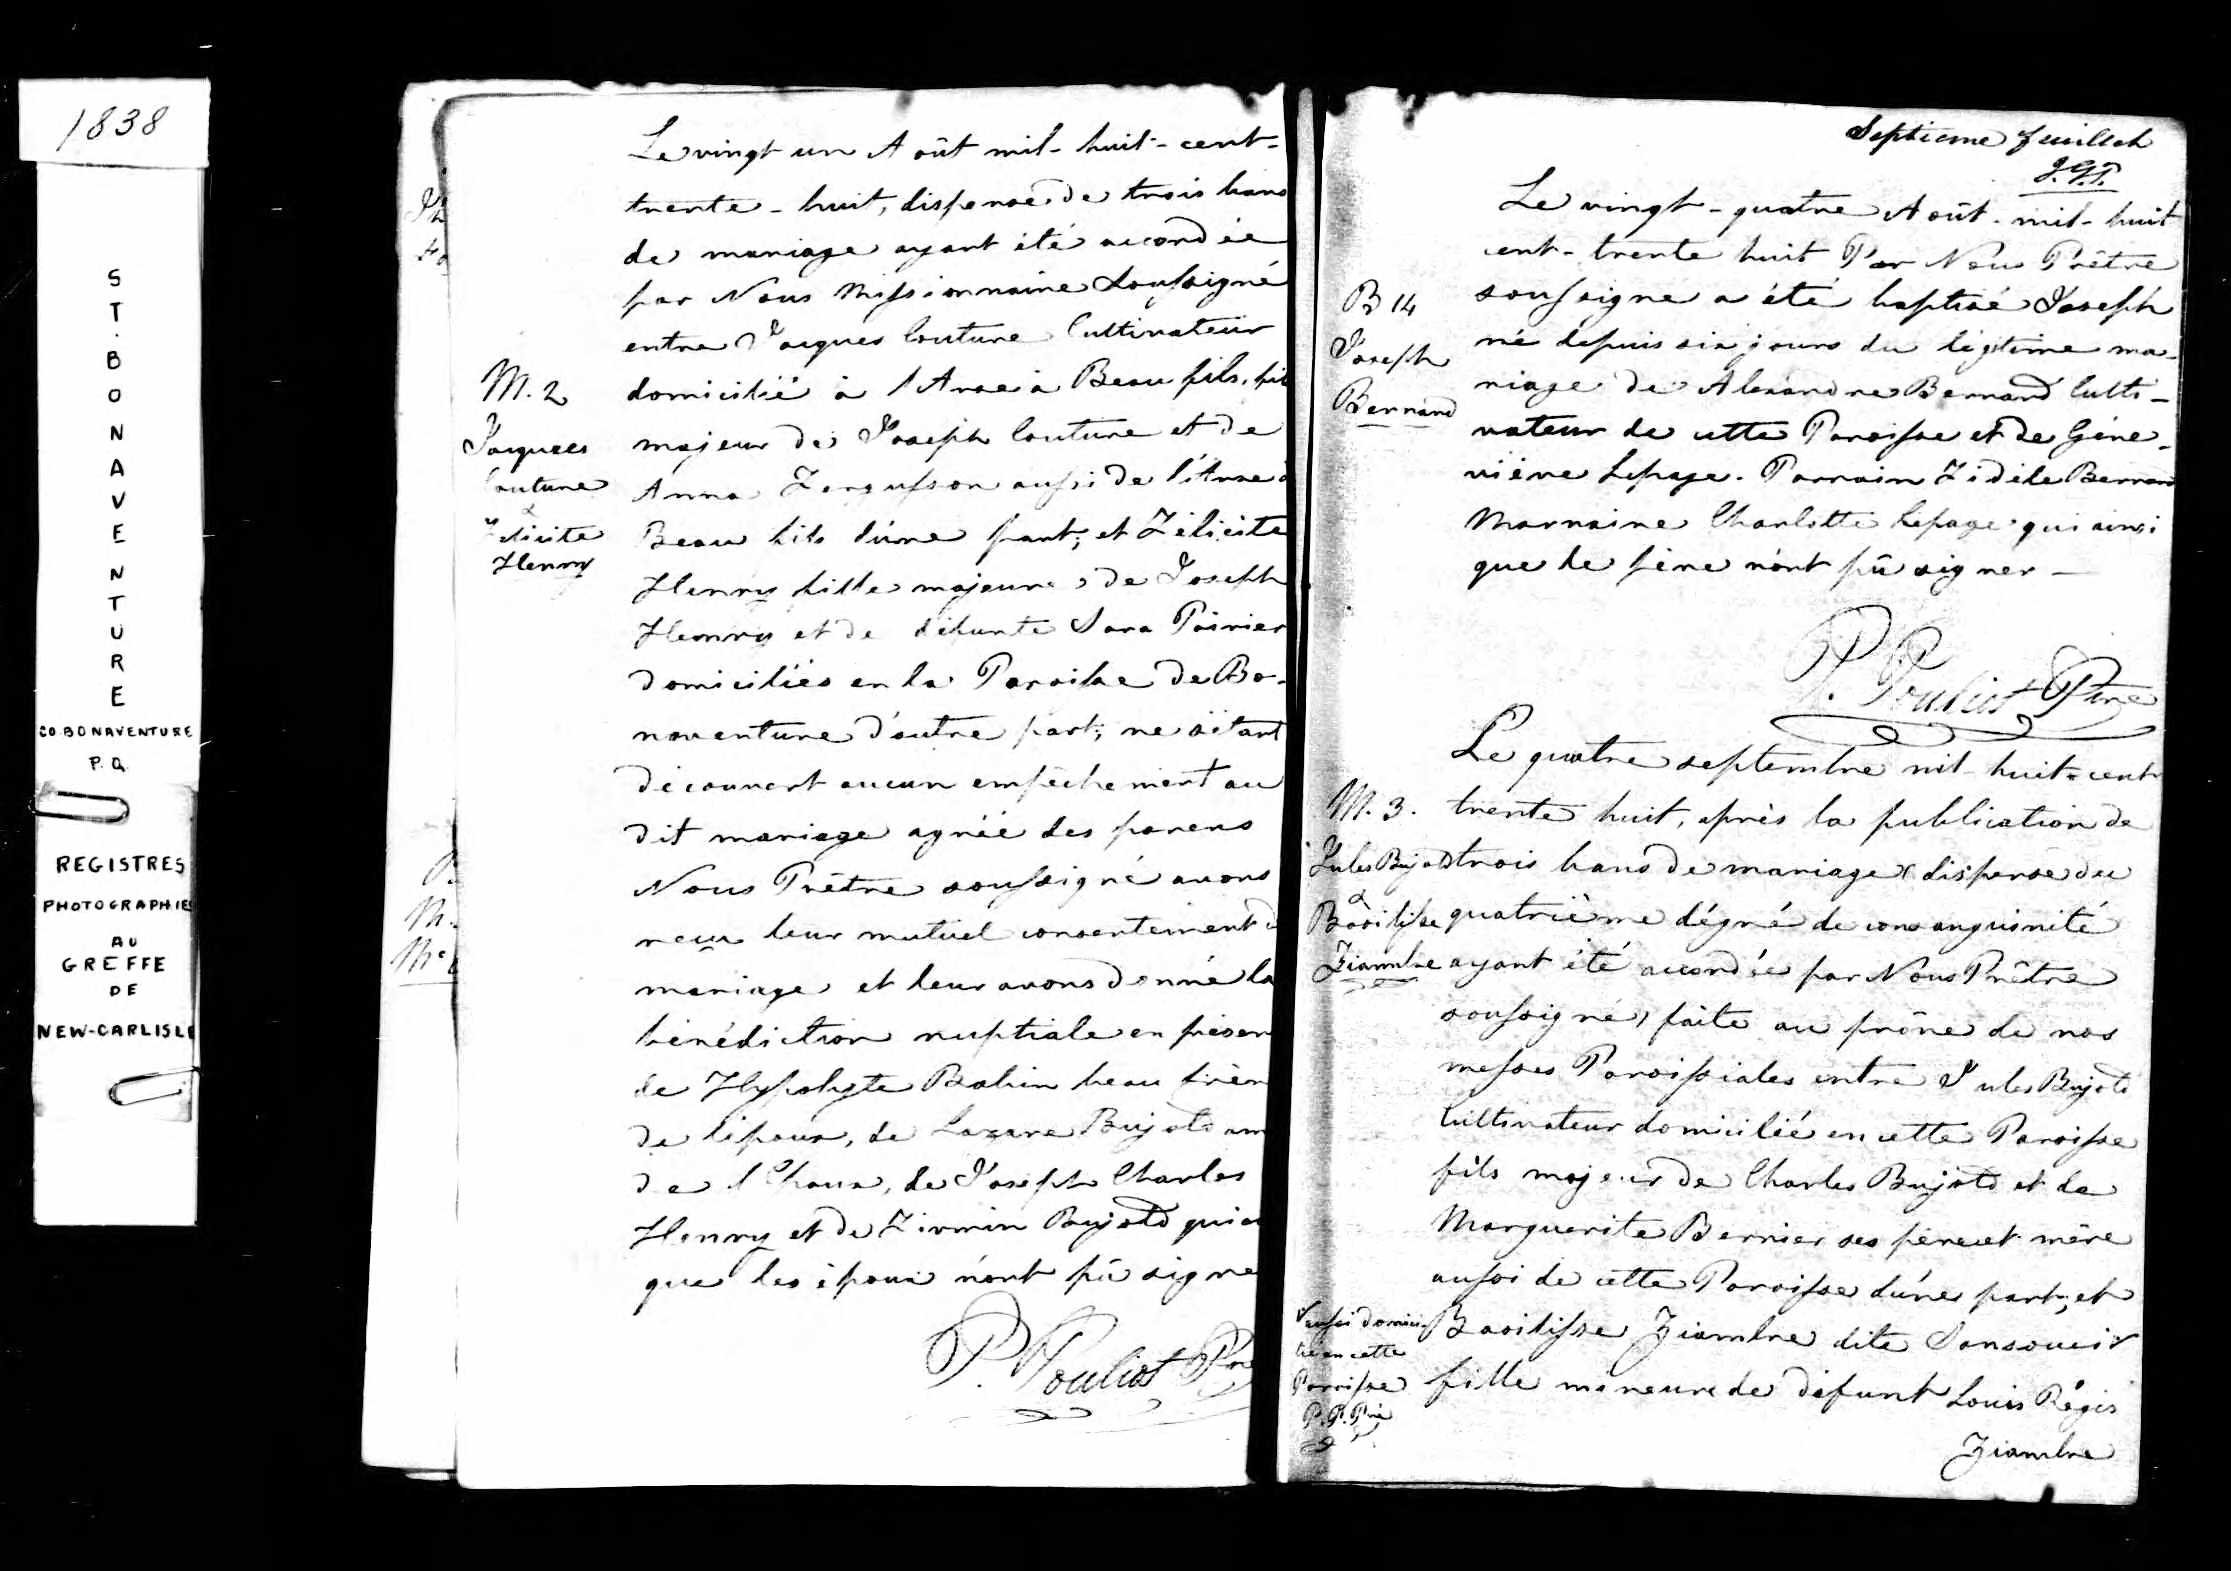 1838
ST. BONAVENTURE
CO. BONAVENTURE
P.Q.
REGISTRES
PHOTOGRAPHIES
AU
GREFFE
DE
NEW-CARLISLE
Le vingt un Août mil-huit-cent-
trente-huit, dispense de trois bans
de mariage ayant été accordée
par Nous Missionnaire Soussigné
entre Jacques Couture Cultivateur
domicilié à l'Anse à Beau fils, fils
majeur de Joseph Couture et de
Anna Fergusson aussi de l'Anse à
Beau fils d'une part; et Félicité
Henry fille majeure de Joseph
Henry et de défunte Sara Poirier
domiciliés en la Paroisse de Bo-
naventure d'autre part; ne s'étant
découvert aucun empêchement au
dit mariage agréé des parens
Nous Prêtre soussigné avons
reçu leur mutuel consentement de
mariage et leur avons donné la
bénédiction nuptiale en présen
de Hypolyte Babin beau frère
de l'époux, de Lazare Bujold ami
de l'Epoux, de Joseph Charles
Henry et de Firmin Bujold qui
que les époux n'ont pû signe
P. Pouliot Ptre
M. 2
Jacques
Couture
&
Félicité
Henry
Septieme feuillet
J.G.T.
Le vingt-quatre Août-mil-huit
cent-trente huit Par Nous Prêtre
soussigné a été baptisé Joseph
né depuis six jours du légitime ma-
riage de Alexandre Bernard Culti-
vateur de cette Paroisse et de Géne-
viève Lepage. Parrain Fidèle Bernard
Marraine Charlotte Lepage qui ainsi
que le père n'ont pû signer —
P. Pouliot Ptre
B 14
Joseph
Bernard
Le quatre septembre mil-huit-cent
trente huit, après la publication de
trois bans de mariage (dispense du
quatrième dégré de consanguinité
ayant été accordée par Nous Prêtre
soussigné) faite au prône de nos
messes Paroissiales entre Jules Bujold
Cultivateur domicilié en cette Paroisse
fils majeur de Charles Bujold et de
Marguerite Bernier ses père et mère
aussi de cette Paroisse d'une part; et
Basilisse Ziambre dite Sansoucir
fille mineure de défunt Louis Régis
Ziambre
M. 3.
Jules Bujold
&
Basilisse
Ziambre
aussi domici-
liée en cette
Paroisse
P. P. Ptre